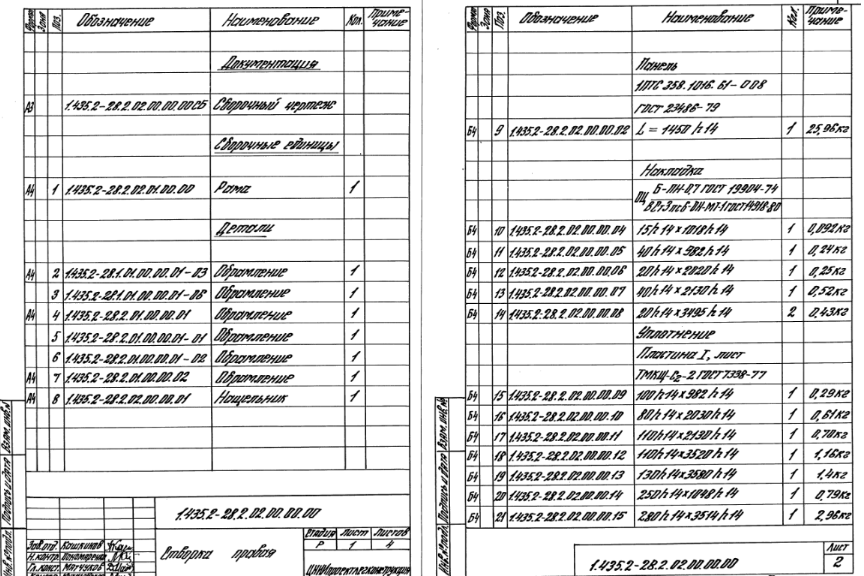 Форма Зона Поз. Обозначение Наименование Кол. Приме-чание
Документация
А3 1.435.2-28.2.02.00.00.00СБ Сборочный чертеж
Сборочные единицы
А4 1 1.435.2-28.2.02.01.00.00 Рама 1
Детали
А4 2 1.435.2-28.1.01.00.00.01-03 Обрамление 1
3 1.435.2-28.1.01.00.00.01-06 Обрамление 1
А4 4 1.435.2-28.2.01.00.00.01 Обрамление 1
5 1.435.2-28.2.01.00.00.01-01 Обрамление 1
6 1.435.2-28.2.01.00.00.01-02 Обрамление 1
А4 7 1.435.2-28.2.01.00.00.02 Обрамление 1
А4 8 1.435.2-28.2.02.00.00.01 Нащельник 1
1.435.2-28.2.02.00.00.00
Стадия Лист Листов
Р 1 4
Створка правая
Зав.отд. Башкинов
Н.контр.
Гл.конст. Матчуков
ЦНИИпроектлегконструкция
Подпись и дата Взам.инв.№
Форма Зона Поз. Обозначение Наименование Кол. Приме-чание
Панель
1ПТС 358.1016.61-008
ГОСТ 23486-79
Б4 9 1.435.2-28.2.02.00.00.02 L = 1450 h14 1 25,96кг
Накладка
ПЦ Б-ПН-0,7 ГОСТ 19904-74
ВСт3пс6-ОН-МТ-1 ГОСТ14918-80
Б4 10 1.435.2-28.2.02.00.00.04 15h14×1018h14 1 0,092кг
Б4 11 1.435.2-28.2.02.00.00.05 40h14×982h14 1 0,24кг
Б4 12 1.435.2-28.2.02.00.00.06 20h14×2020h14 1 0,25кг
Б4 13 1.435.2-28.2.02.00.00.07 40h14×2130h14 1 0,52кг
Б4 14 1.435.2-28.2.02.00.00.08 20h14×3495h14 2 0,43кг
Уплотнение
Пластина I, лист
ТМКЩ-С2-2 ГОСТ7338-77
Б4 15 1.435.2-28.2.02.00.00.09 100h14×982h14 1 0,29кг
Б4 16 1.435.2-28.2.02.00.00.10 80h14×2030h14 1 0,61кг
Б4 17 1.435.2-28.2.02.00.00.11 110h14×2130h14 1 0,70кг
Б4 18 1.435.2-28.2.02.00.00.12 110h14×3520h14 1 1,16кг
Б4 19 1.435.2-28.2.02.00.00.13 130h14×3580h14 1 1,4кг
Б4 20 1.435.2-28.2.02.00.00.14 250h14×1048h14 1 0,79кг
Б4 21 1.435.2-28.2.02.00.00.15 280h14×3514h14 1 2,96кг
1.435.2-28.2.02.00.00.00
Лист
2
Инв.№подл. Подпись и дата Взам.инв.№